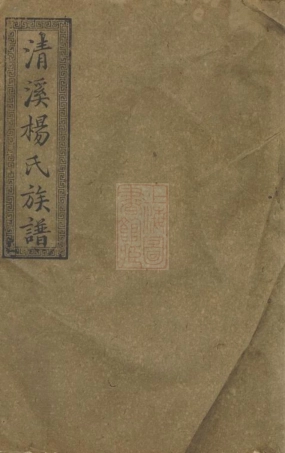 清溪楊氏族譜